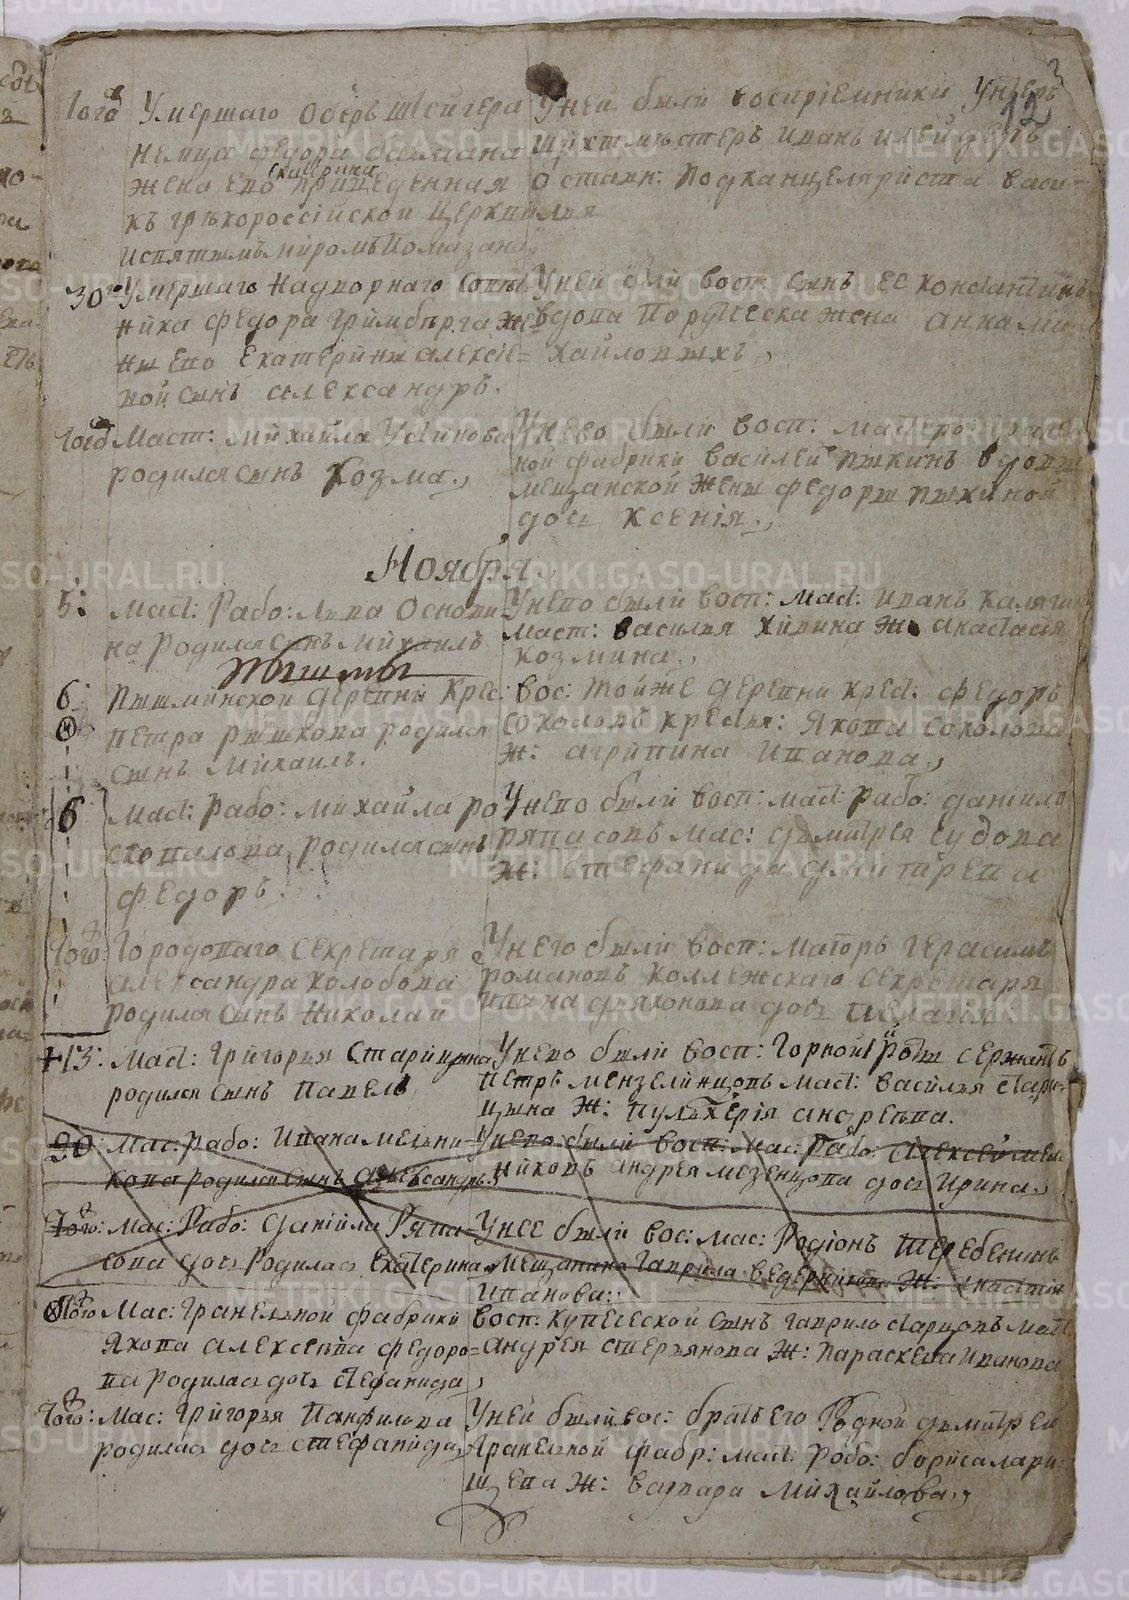 12
Того Умершаго Оберъ Штейгера
немца Федора
жена ево Екатерина приведенная
къ грѣкороссійской церкви
и святымъ миромъ помазана
У ней были восприемники Унтеръ
шихтмѣстеръ Иванъ
остав: подканцеляриста Васи-
лья
30го Умершаго надворнаго совѣт
ника Федора Гримберга же
ны ево Екатерины Алексѣе=
вой сынъ Александръ.
У ней были восп: сынъ ее Константинъ
вдова Порутческа жена Анна Ми
хайловыхъ,
Того Маст: Михайла Устинова
родился сынъ Козма.,
У нево были восп: мастеро:
ной фабрики Василей Пыхинъ вдовы
мещанской жены Федоры Пыхиной
дочь Ксенія.,
Ноября.
5: Маст: Рабо: Льва Основи
на родился сынъ Михаилъ
У нево были восп: Маст: Иванъ Калягин
маст: Василья Хирина Ж: Анастасія
Козмина.,
Пышмы
6: Пышминской деревни Крес:
Петра Рышкова родился
сынъ Михаилъ.
Вос: тойже деревни крест: Федоръ
Соколовъ крестья: Якова Соколова
Ж: Агрипина Иванова.,
6 Маст: Рабо: Михайла Ро
скопалова родился сынъ
Федоръ.
У нево были восп: маст: рабо: Данило
Ряпасовъ мас: Дѣмитрея Судова
Ж: Стефанида Дмитрева
Того: Городоваго Секретаря
Александра Холобова
родился сынъ Николай
У него были восп: Маторъ Герасимъ
Романовъ Коллежскаго Секретаря
Ивана Дьяконова дочь Пелагия
+13: Маст: Григорья Старицына
родился сынъ Павелъ
У нево были восп: Горной роты сержантъ
Петръ Мензелинцовъ маст: Василья Стари-
цына Ж: Пульхѣрія Андрѣева.
30: Мас: Рабо: Ивана Мельни-
кова родился сынъ Александръ.
У нево были восп: Мас: Рабо: Алексей Мел
никовъ Андрея Мезенцова дочь Ирина.,
Того: Мас: Рабо: Данійла Ряпа=
сова дочь родилась Екатерина
У нее были вос: мас: Родіонъ Теребенинъ
Мещанина Гаврила Ведерникова Ж: Анастасія
Иванова:,
Того Мас: Гранильной фабрики
Якова Алексеева Федоро=
ва родилась дочь Стефанида,
Восп: Купеческой сынъ Гаврило Старцовъ маст
Андрея Стерьянова Ж: Параскева Иванова
Того: Мас: Григорья Панфилова
родилась дочь Стефанида,
У ней были вос: братъ его родной Дѣмитрей
Гранильной фабр: маст: рабо: Бориса Лари
щева Ж: Варвара Михайлова.,
METRIKI.GASO-URAL.RU